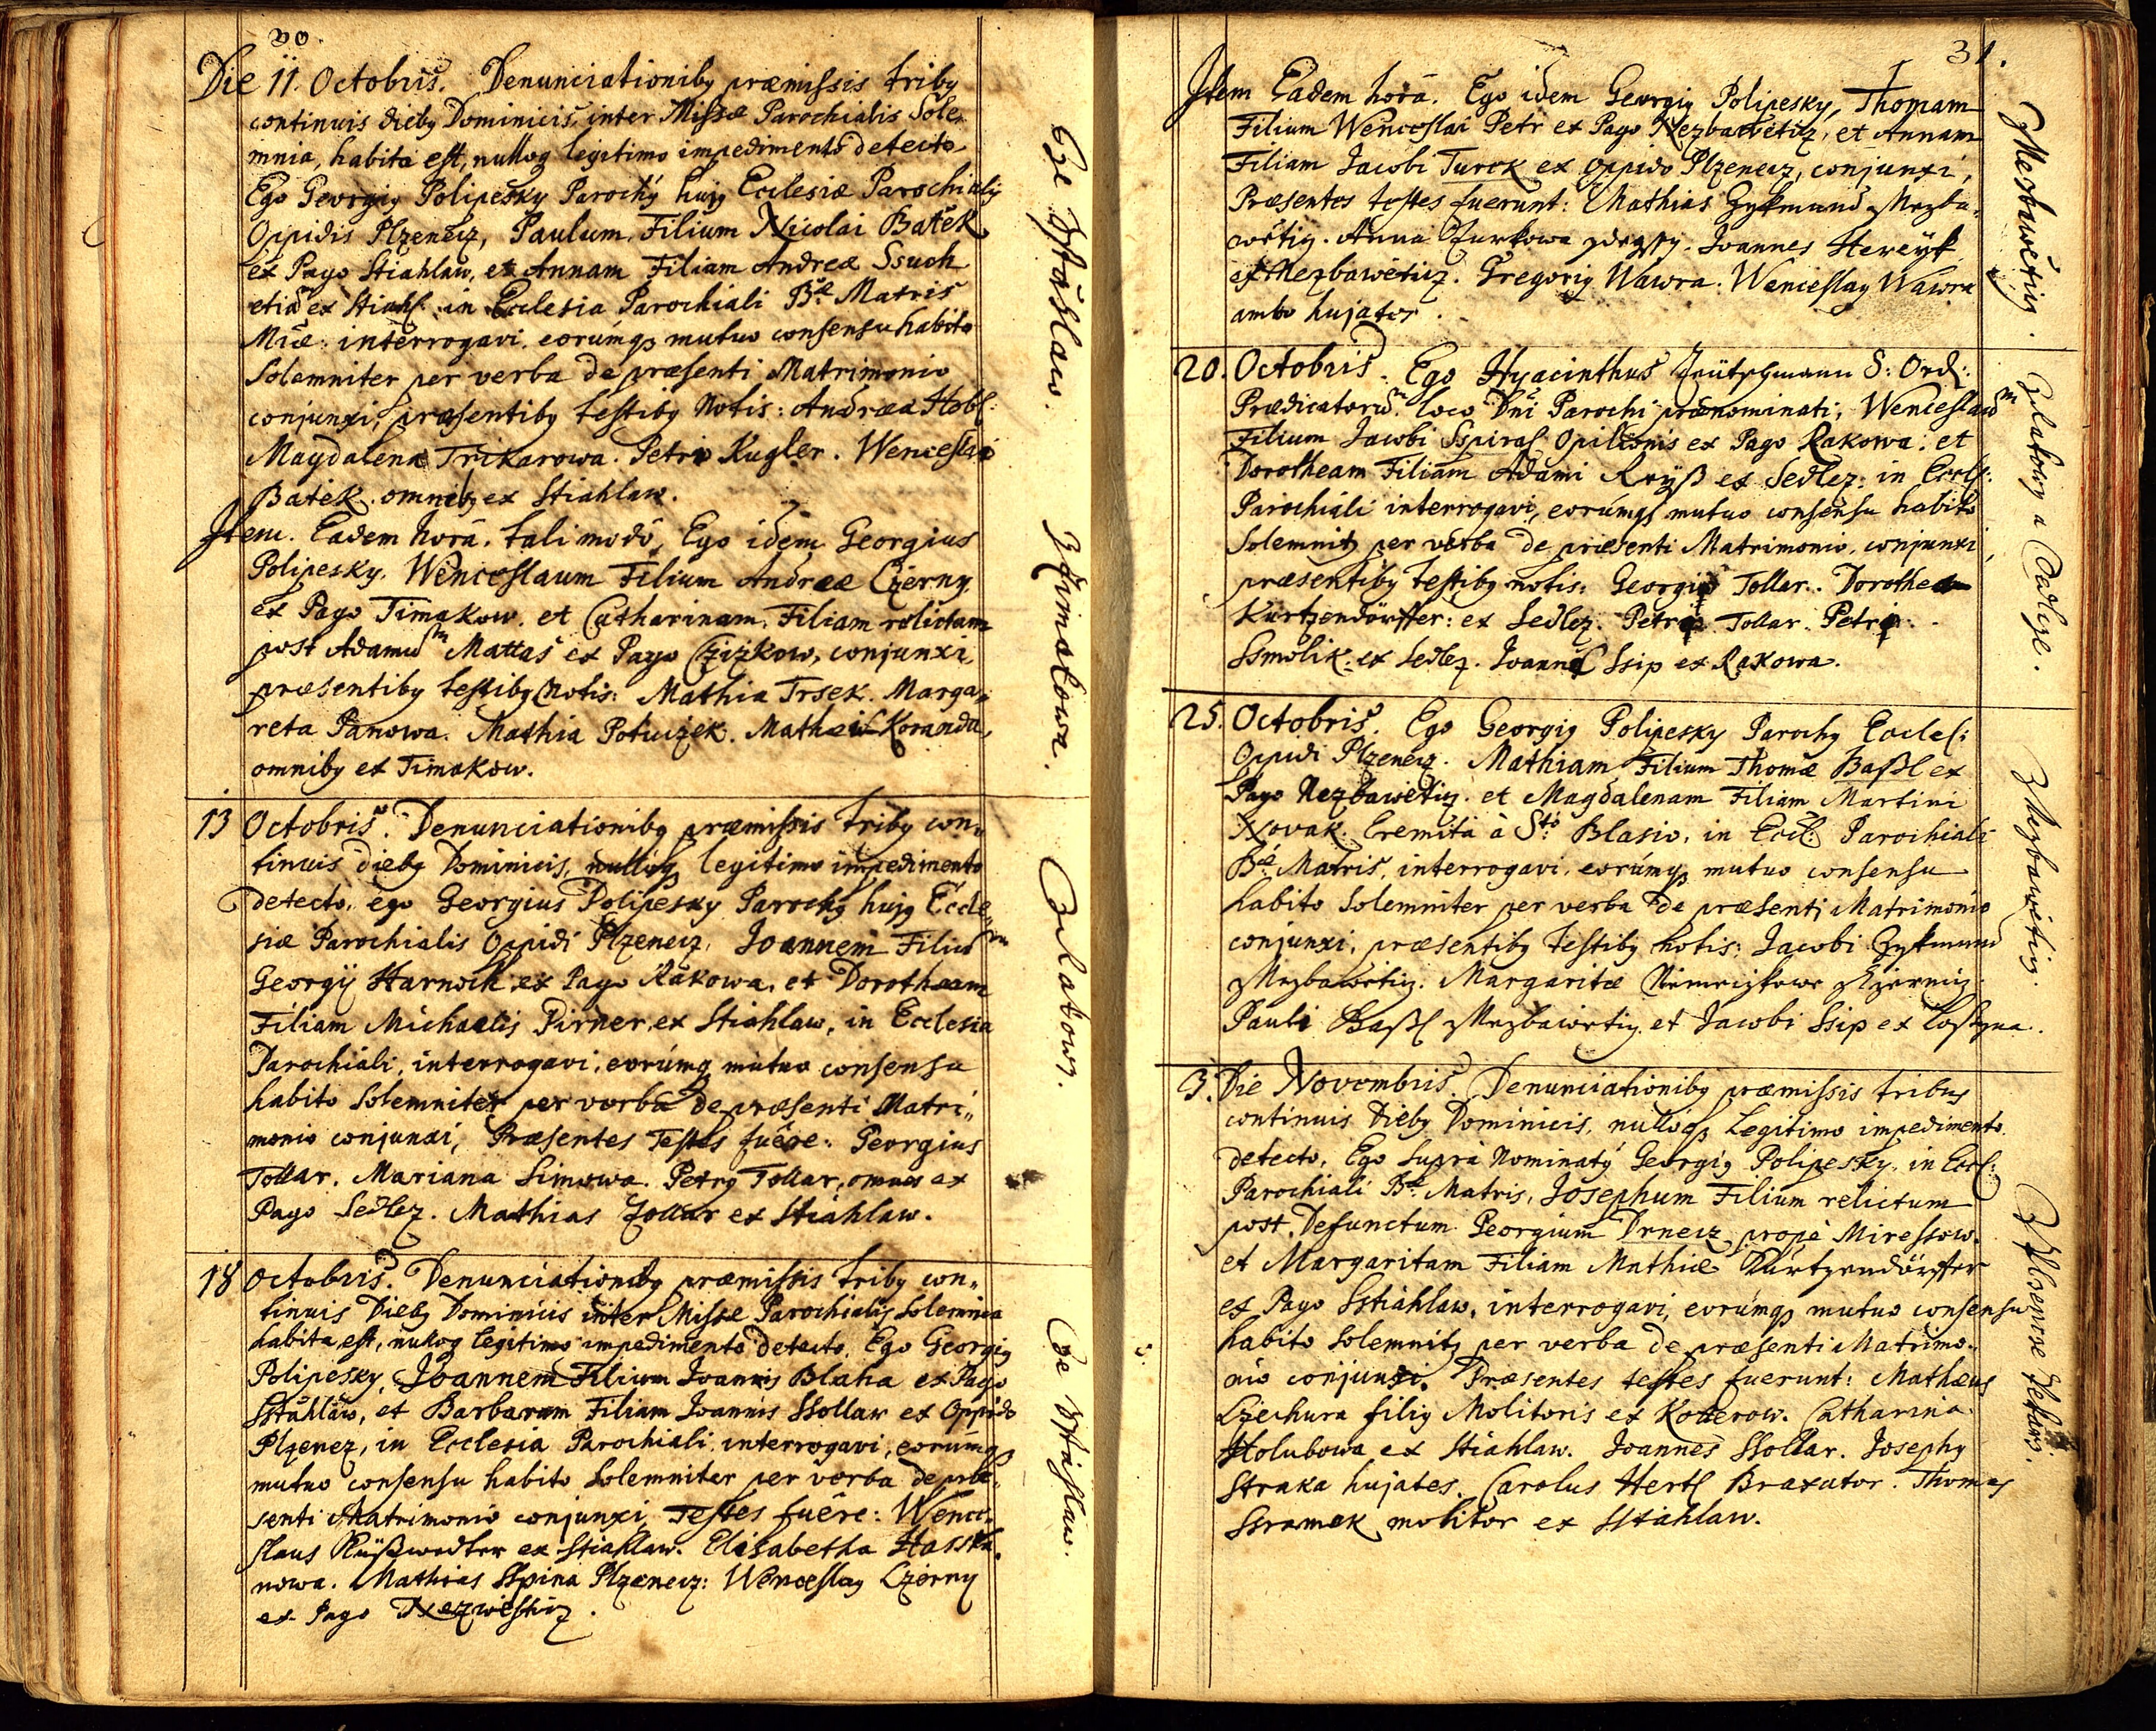 30.
Die 11. Octobris. Denunciationiby præmissis triby
continuis dieby Dominicis, inter Missæ Parochialis Sole,,
mnia, habita est, nulloq legitimo impedimento detecto
Ego Georgiy Polipesky Parochy hujy Ecclesiæ Parochialis
Oppidis Plzenecz, Paulum, Filium Nicolai Batěk
ex Pago Stiahlaw, et Annam Filiam Andreæ Ssuch
etiā ex Stiahl: in Ecclesia Parochiali B.æ Matris
Miæ: interrogavi, eorúmq3 mutuo consensu habito
Solemniter per verba de præsenti Matrimonio
conjunxi, præsentiby testiby Notis: Andræa Hobl.
Magdalena Trikarowa. Petro Kugler. Wenceslao
Batěk. omniby ex Stiahlaw.
Item. Eadem horâ. tali modô, Ego idem Georgius
Polipesky, Wenceslaum Filium Andreæ Czerny,
ex Pago Timakow. et Catharinam, Filiam relictam
post Adamūm Mattas ex Pago Cžižkow, conjunxi,
præsentiby testiby Notis: Mathia Trsek. Marga,,
reta Panowa. Mathia Potuczek. Korandu,
omniby ex Timakow.
Cze Sstiahlaw. Z Czinakowa.
13 Octobris. Denunciationiby præmissis triby con,,
tinuis dieby Dominicis, nulloq3 legitimo impedimento
detecto, ego Georgius Polipesky Parochy hujy Eccle,,
siæ Parochialis Oppidi Plzenecz, Joannem Filiūm
Georgÿ Harnoch ex Pago Rakowa, et Dorotheam
Filiam Michaelis Pirner, ex Stiahlaw, in Ecclesia
Parochiali, interrogavi, eorúmq mutuo consensu
habito Solemniter per verba de præsenti Matri,,
monio conjunxi, Præsentes Testes fuêre: Georgius
Tollar. Mariana Simowa. Petry Tollar, omnes ex
Pago Sedlez. Mathias Zollar ex Stiahlaw.
Z Rakowy.
18 Octobris. Denunciationiby præmissis triby con,,
tinuis Dieby Dominicis inter Missæ Parochialis Solemnia
habita est, nulloq legitimo impedimento detecto. Ego Georgiy
Polipesky, Joannem Filium Joannis Blaha ex Pago
Sstiahlaw, et Barbaram Filiam Joannis Stollar ex Oppido
Plzenez, in Ecclesia Parochiali interrogavi, eorúmq3
mutuo consensu habito Solemniter per verba de præ,,
senti Matrimonio conjunxi, Testes fuere: Wence,,
slaus ex Stiahlaw. Elisabetha Hasska,,
nowa. Mathias Spina Plzenecz: Wenceslay Czerny
ex Pago Nezwiesticz.
Cze Sstiahlaw.
31.
Item Eadem horâ. Ego idem Georgiy Polipesky, Thomam
Filium Wenceslai Petr ex Pago Nezbawěticz, et Annam
Filiam Jacobi Turek ex Oppido Plzenecz, conjunxi,
Præsentes testes fuerunt: Mathias Zykmund z Nezba,,
wěticz. Anna Jurkowa zdegssy. Joannes Hereyk
ex Nezbawěticz. Gregoriy Wawra. Wenceslay Wawra
ambo hujates.
z Nezbawěticz.
20. Octobris. Ego Hyacinthus S: Ord:
Prædicatorūm loco Dni Parochi prænominati, Wenceslaūm
Filium Jacobi Sspiral Opilionis ex Pago Rakowa: et
Dorotheam Filiam Adami Reyß ex Sedlez: in Eccls:
Parochiali interrogavi, eorúmq3 mutuo consensu habito
Solemnitz per verba de præsenti Matrimonio, conjunxi
præsentiby testiby notis: Georgio Tollar. Dorothea
Kurtzendörffer: ex Sedlez. Petro Tollar. Petro
Ssmolik: ex Sedlez. Joanne Ssip ex Rakowa.
Z Rakowy a Sedlcze.
25. Octobris. Ego Georgiy Polipesky Parochy Eccles:
Oppidi Plzenecz. Mathiam Filium Thomæ Baßl ex
Pago Nezbawěticz. et Magdalenam Filiam Martini
Novak. Eremitâ â Sto Blasio, in Eccl: Parochiali
B.æ Matris, interrogavi, eorúmq3 mutuo consensu
habito Solemniter per verba de præsenti Matrimonio
conjunxi, præsentiby testiby notis: Jacobi Zykmund
z Nezbawěticz. Margaritæ
Pauli Baßl z Nezbawěticz. et Jacobi Ssip ex
z Nezbawěticz.
3. Die Novembris. Denunciationiby præmissis tribus
continuis Dieby Dominicis, nullôq3 Legitimo impedimento
detecto, Ego Supra Nominatÿ Georgiy Polipesky, in Eccl:
Parochiali B.æ Matris, Josephum Filium relictum
post Defunctum Georgium Drnecz prope Miressow,
et Margaritam Filiam Mathiæ Kúrtzendörffer
ex Pago Sstiahlaw, interrogavi, eorúmq3 mutuo consensu
habito Solemnitz per verba de præsenti Matrimo,,
nio conjunxi. Præsentes testes fuerunt: Mathæus
Czechura filiy Molitoris ex Kotterow. Catharina
Holubowa ex Stiahlaw. Joannes Stollar. Josephy
Straka hujates. Carolus Hertl Braxator. Thomas
Ssramek molitor ex Sstiahlaw.